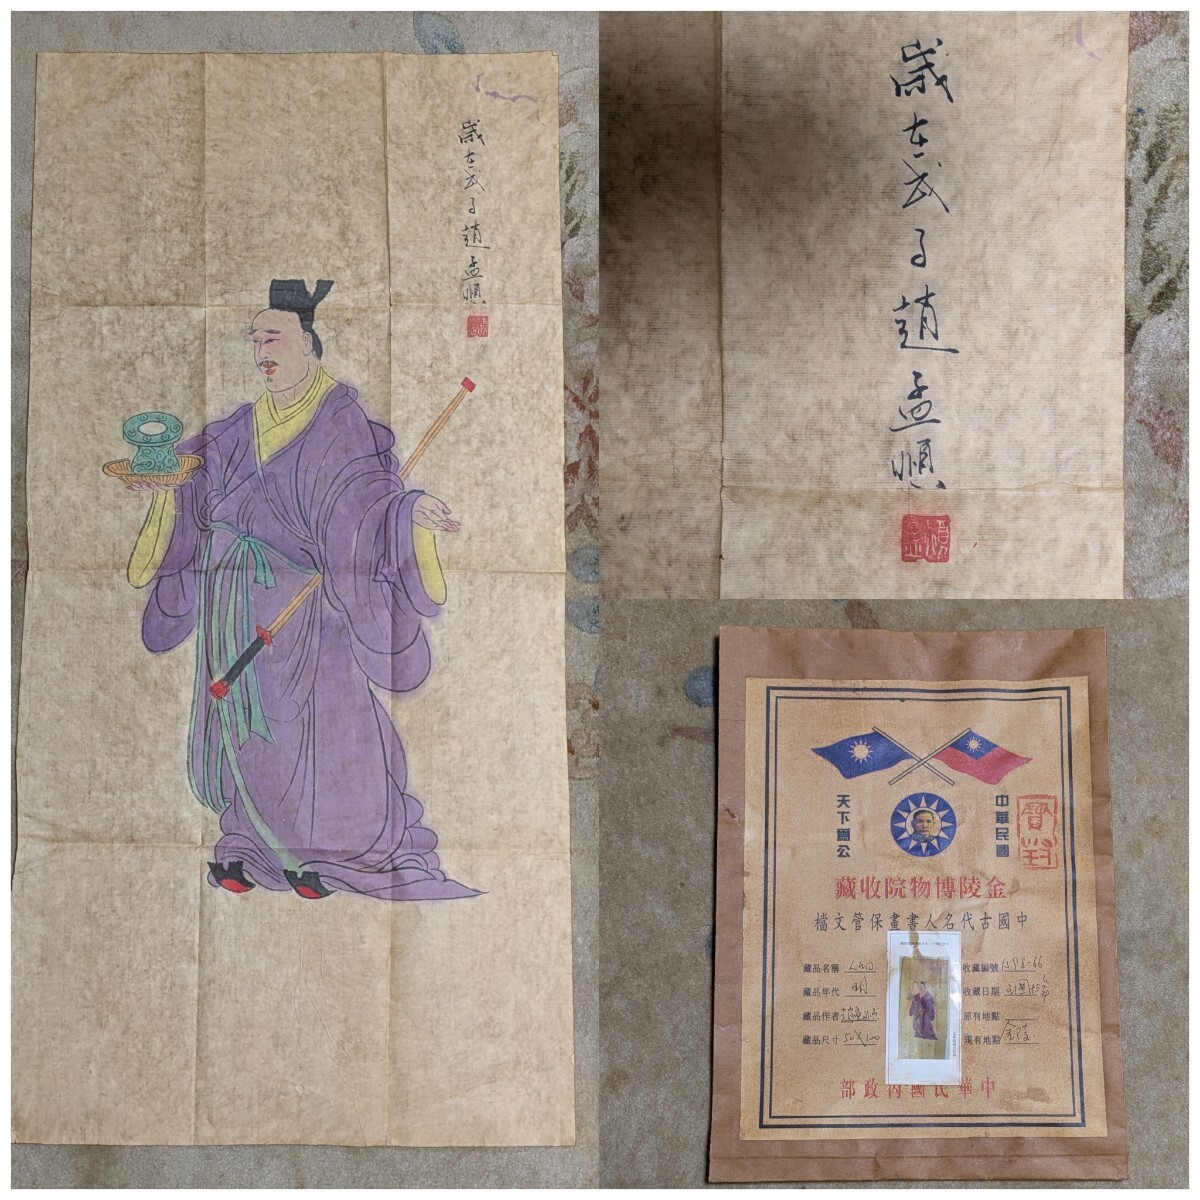 歲在戊子趙孟順
歲在戊子趙孟順
中華民國
天下爲公
金陵博物院收藏
中國古代名人書畫保管文檔
藏品名稱 人物
藏品年代 明
藏品作者
藏品尺寸 50X100
收藏編號 1598-66
收藏日期
原有地點
現有地點 金陵
中華民國內政部